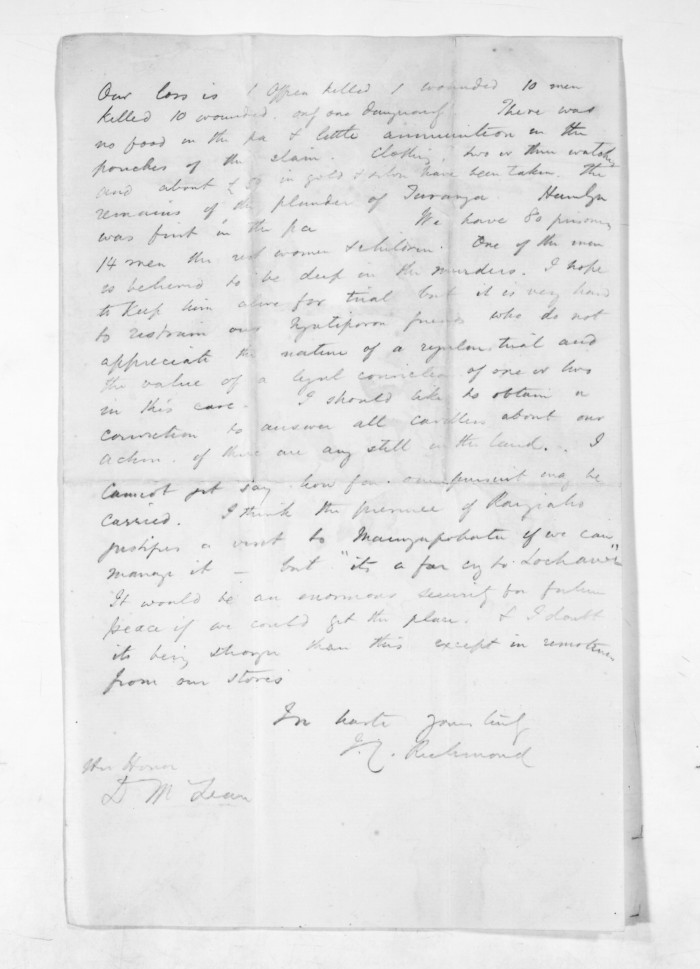 Our loss is 1 Officer killed 1 wounded 10 men
killed 10 wounded, only one dangerously. There was
no food in the pa & little ammunition in the
pouches of the slain. Clothing, two or three watches
and about in gold & silver have been taken, the
remains of the plunder of Turanga.
was first in the pa We have 80 prisoners
14 men the rest women & children. One of the men
is believed to be deep in the murders. I hope
to keep him alive for trial but it is very hard
to restrain our Ngatiporou friends who do not
appreciate the nature of a regular trial and
the value of a legal conviction of one or two
in this case. I should like to obtain a
conviction to answer all cavillers about our
action if there are any still in the land. I
cannot yet say how far our pursuit may be
carried. I think the presence of
justifies a visit to Maungapohatu if we can
manage it – but "its a far cry to Lochawe"
It would be an enormous security for future
peace if we could get the place. & I doubt
its being stronger than this except in remoteness
from our stores
In haste yours truly
J.C. Richmond
His Honor
D McLean